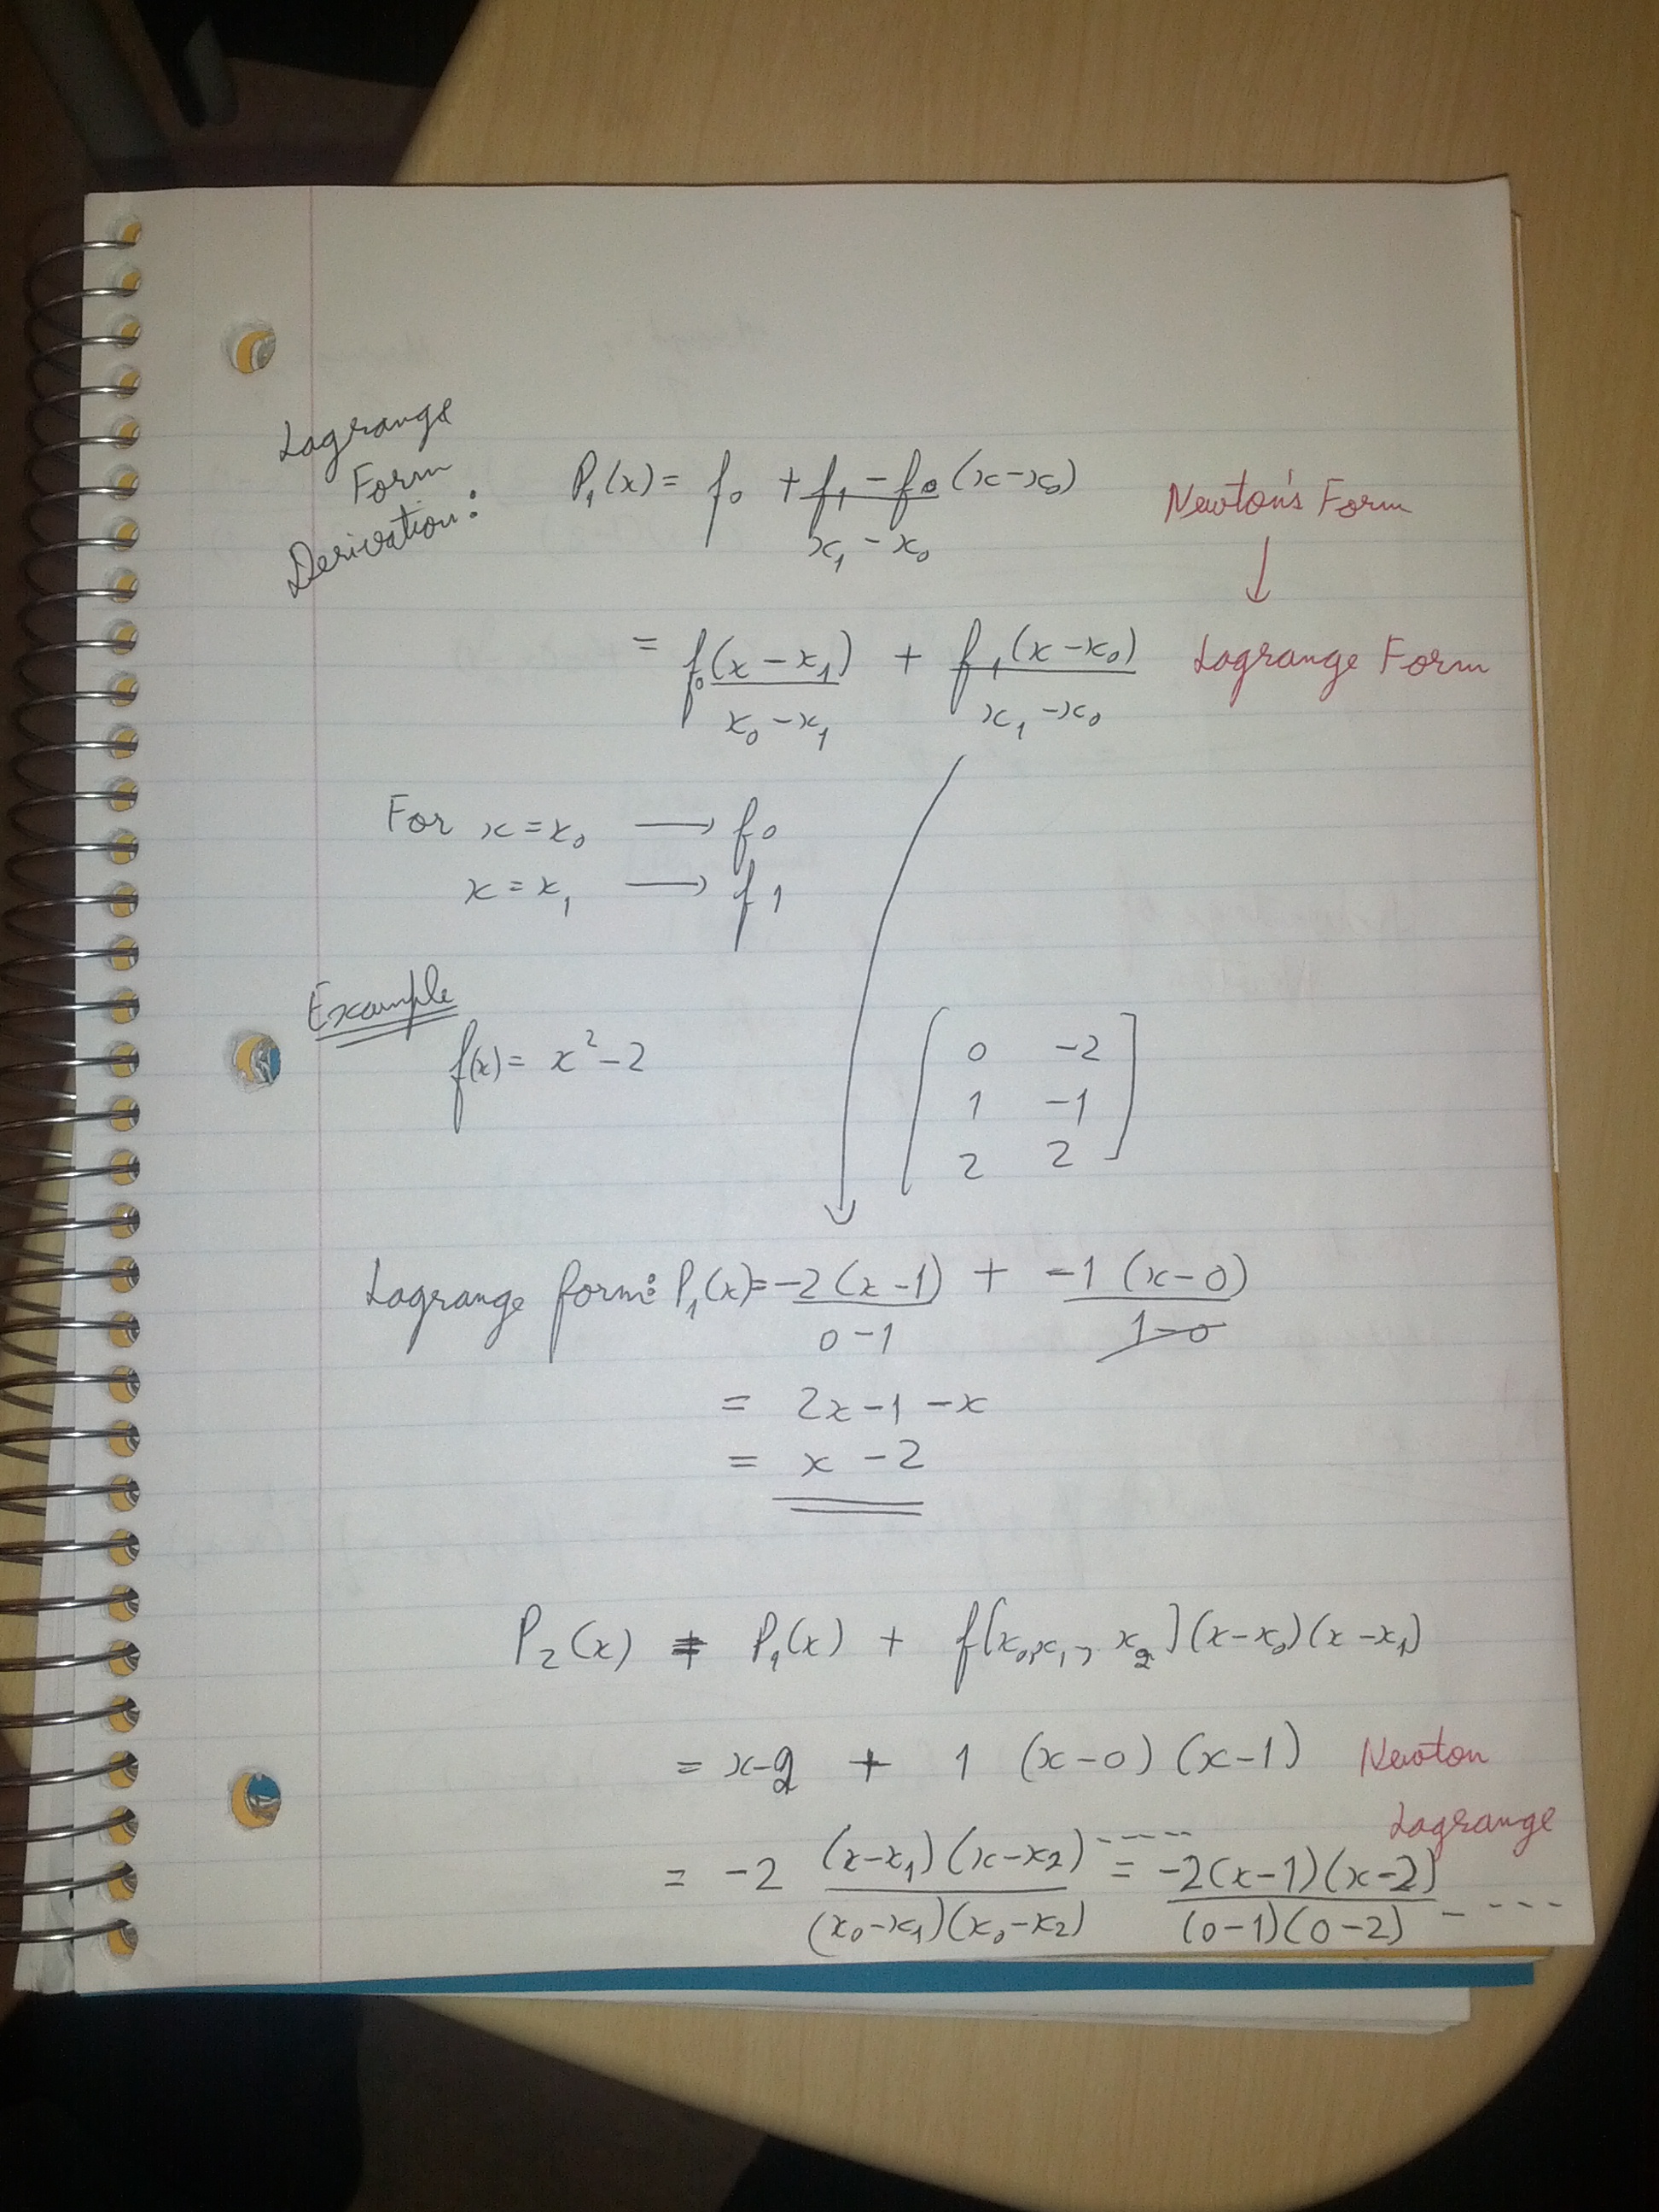 Lagrange
Form
Derivation:
P₁(x) = f₀ + (f₁ - f₀)/(x₁ - x₀) (x-x₀)
Newton's Form
↓
= f₀(x - x₁)/(x₀ - x₁) + f₁(x - x₀)/(x₁ - x₀)
Lagrange Form
For x = x₀ → f₀
x = x₁ → f1
Example
f(x) = x² - 2
[0 -2
1 -1
2 2]
Lagrange form: P₁(x) = -2(x-1)/(0-1) + -1(x-0)/(1-0)
= 2x - 1 - x
= x - 2
P₂(x) = P₁(x) + f[x₀,x₁, x₂](x-x₀)(x-x₁)
= x-2 + 1 (x-0) (x-1) Newton
Lagrange
= -2 (x-x₁)(x-x₂)/(x₀-x₁)(x₀-x₂) ---- = -2(x-1)(x-2)/(0-1)(0-2) ----